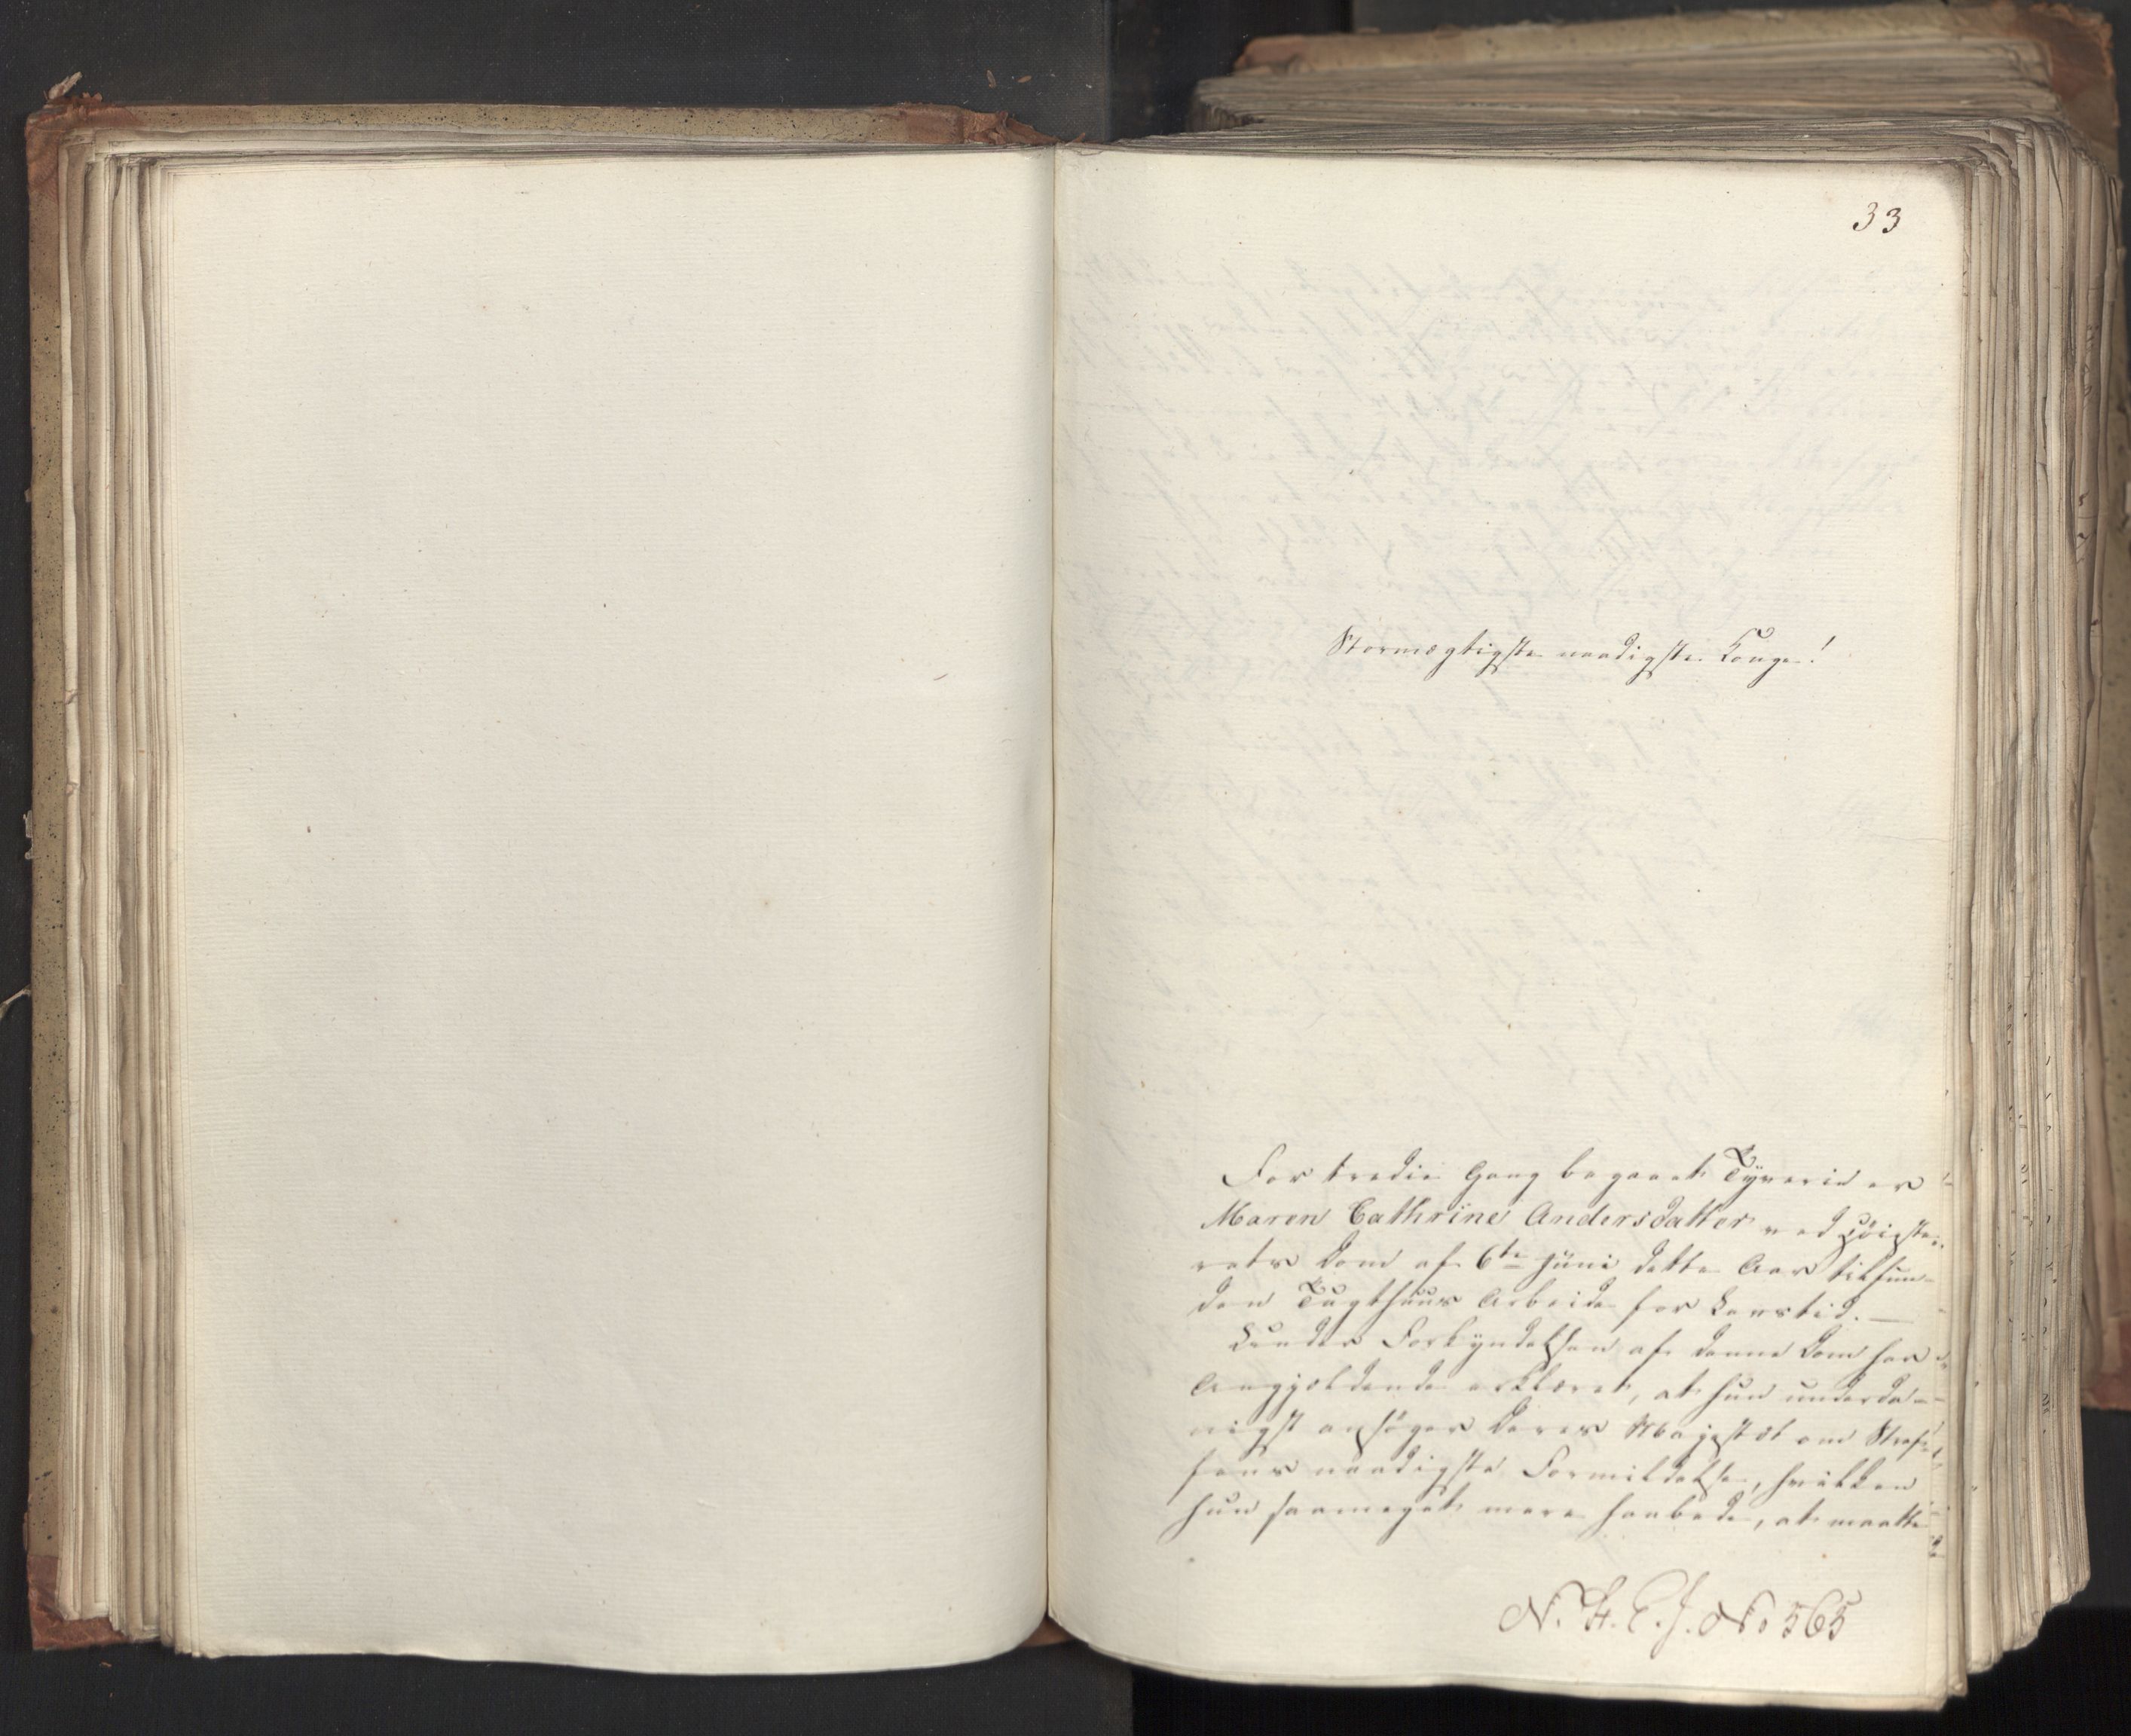 33
Stormægtigste naadigste Konge!
For tredie Gang begaaet Tyverie er
Maren Cathrine Andersdatter ved Høieste-
rets Dom af 6te Juni dette Aar tilfun-
den Tugthuus Arbeide for Livstid. —
Under Forkyndelsen af denne Dom har
Angjældende erklæret, at hun underda-
nigst ansøger Deres Majestæt om Straf-
fens naadigste Formildelse, hvilken
hun saameget mere haabede, at maatte
N. H. C. J. No 565